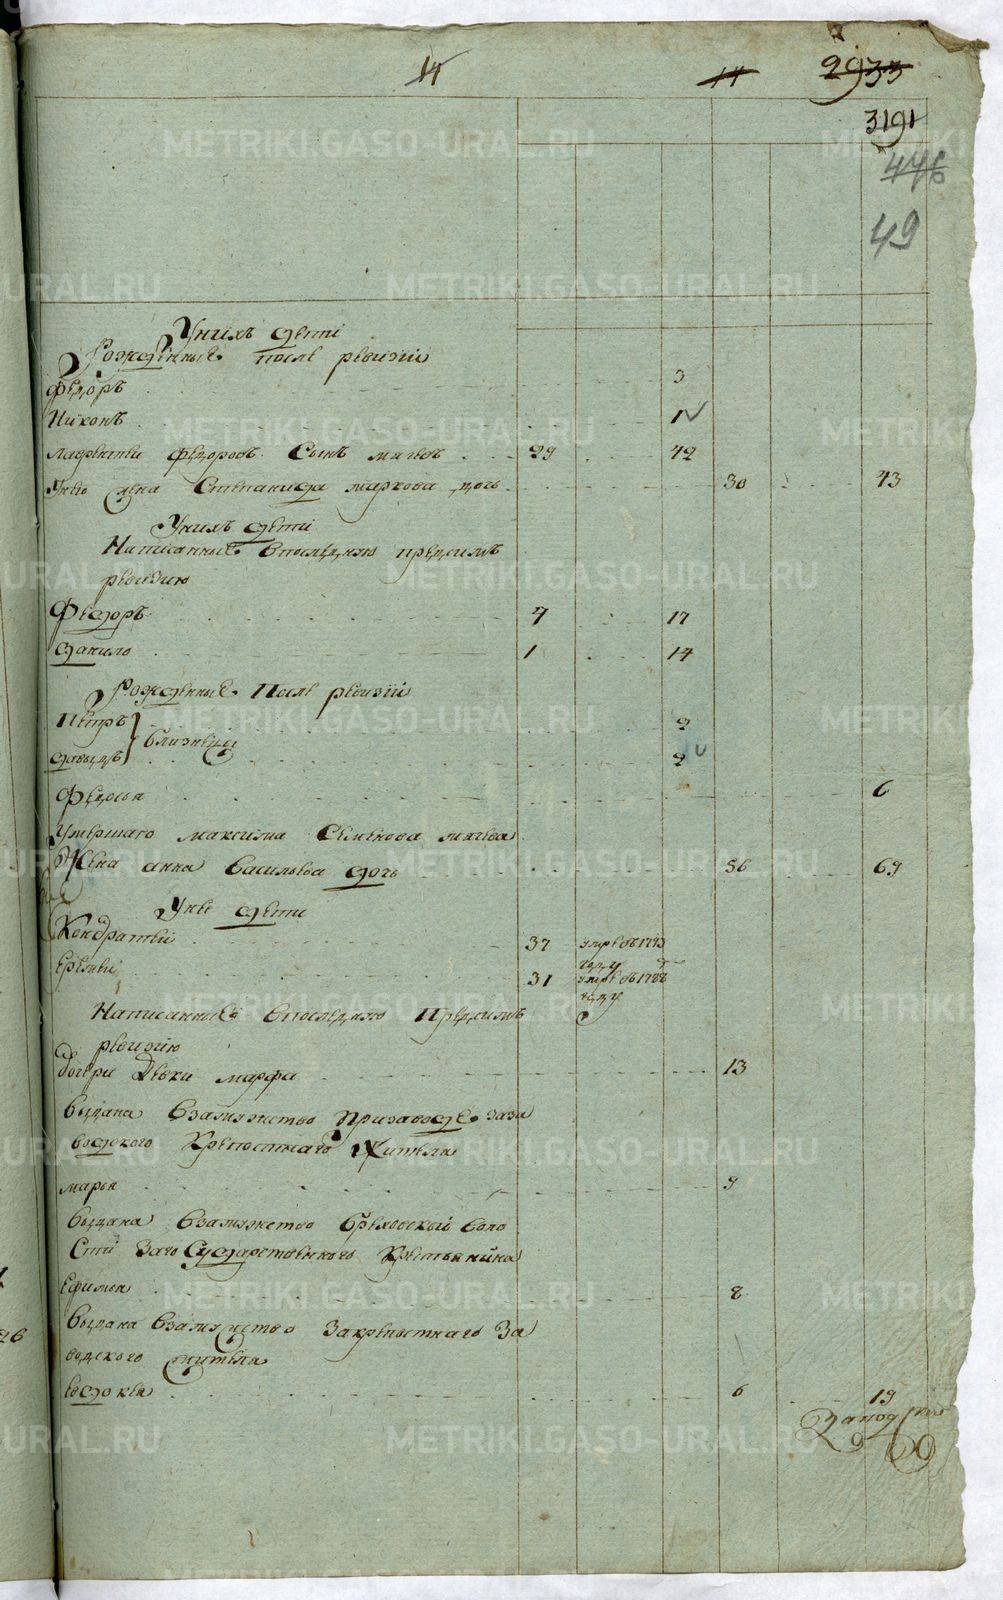 14
14
2933
3191
446
49
METRIKI.GASO-URAL.RU
Унихъ дети
Рожденныя после ревизіи
Федоръ 3
Никонъ 1
лаврентей федоровъ Сынъ мягъевъ 29 42
Унего жена Степанида маркова дочь 30 43
Унихъ дети
Написанныя впоследнюю предсимъ
ревизию
Федоръ 4 17
данило 1 14
Рожденныя После ревизіи
Петръ 2
близнецы
давыдъ 2
Федосья 6
умершаго максима Семенова мягъева
Жена анна васильева дочь 56 69
Унее дети
Кондратей 37 умре въ 1793
году
еремей 31 умре въ 1788
году
Написанныя впоследнюю Предсимъ
ревизию
дочери девки марфа 13
выдана взамужство призаводе за за
водского крепостнаго жителя
марья 9
выдана взамужство воло
сти за государственнаго крестьянина
ефимья 8
выдана взамужство закрепостнаго за
водского жителя
евдокия 6 19